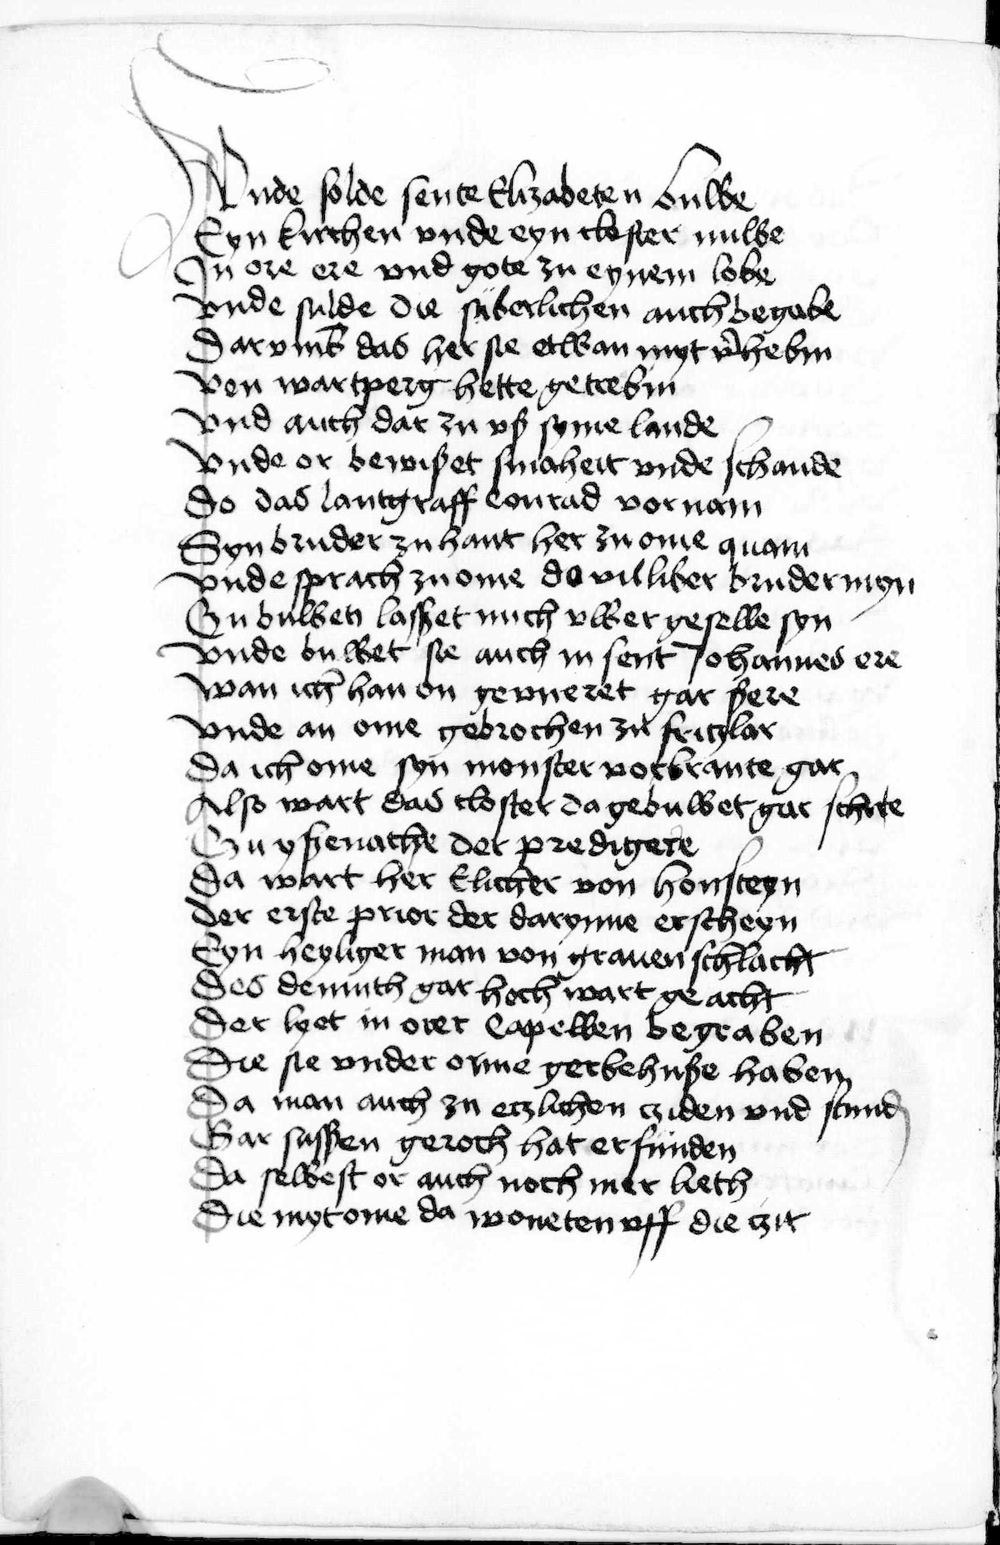 Unde solde sente Elizabeten buwe
Eyn kirchen unde eyn closter nuwe
In ore ere und gote zu eynem lobe
Unde sulde die suberlichen auch begabe
Dar umb das her sie etwan myt vrhebin
Von wartperg hette getrebin
Und auch dar zu uß syme lande
Unde or bewißet smaheit unde schande
Do das lantgraff Conrad vornam
Syn bruder zu hant her zu ome quam
Unde sprach zu ome do vil liber bruder myn
Zu buwen lasset mich uwer geselle syn
Unde buwet sie auch in sent Johannes ere
Wan ich han on geuneret gar ßere
Unde an ome gebrochen zu fritzlar
Da ich ome syn monster vorbrante gar
Also wart das closter da gebuwet gar schire
Zu yßenache der predigere
Da wart her Elicher von honsteyn
Der erste prior der darynne erscheyn
Eyn heyliger man von graven schlacht
Des demuth gar hoch wart geacht
Der lyet in orer Capellen begraben
Die sie under orme gerbehuße haben
Da man auch zu etzlichen cziden und stund
Gar sussen geroch hat erfunden
Da selbest or auch noch mer lieth
Die myt ome da woneten uff die czit